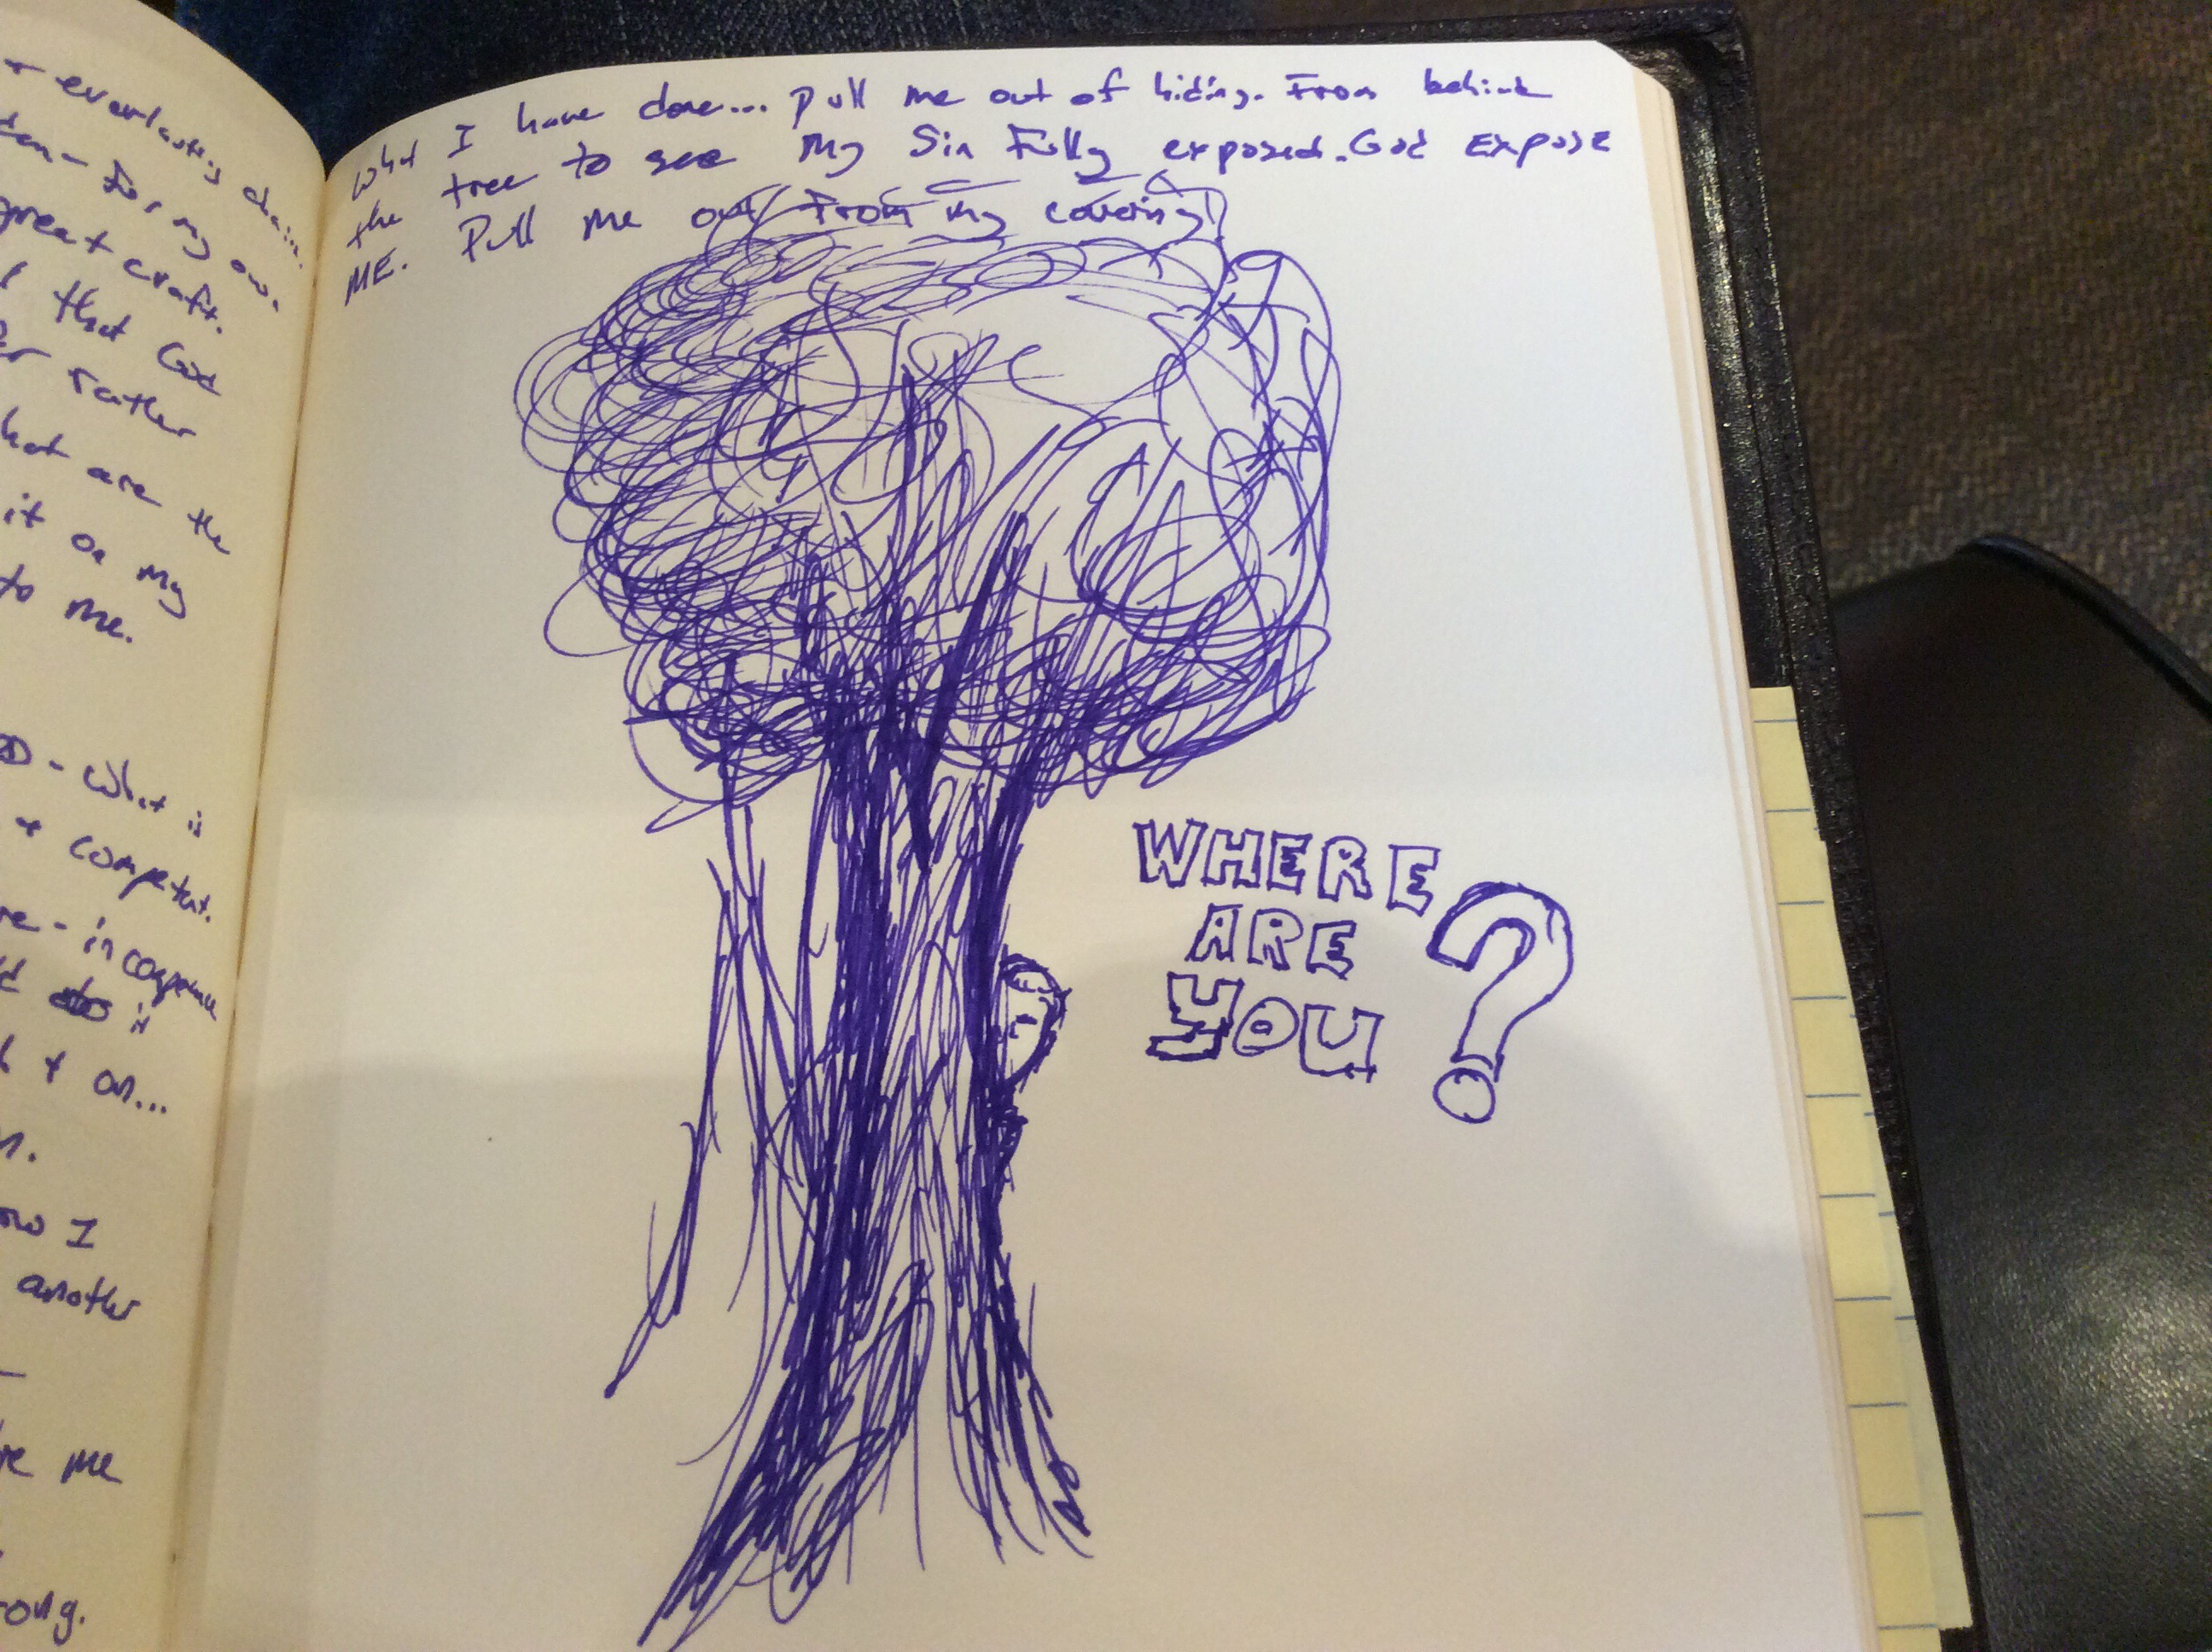 + everlasting chain.
for my own
great craft.
that God
rather
hat are the
it on my
to me.
- What is
+ competent.
re - in
it
+ on...
I
another
me
What I have done... Pull me out of hiding. From behind
the tree to see my Sin Fully exposed. God Expose
ME. Pull me out From my covering!
WHERE
ARE
YOU ?